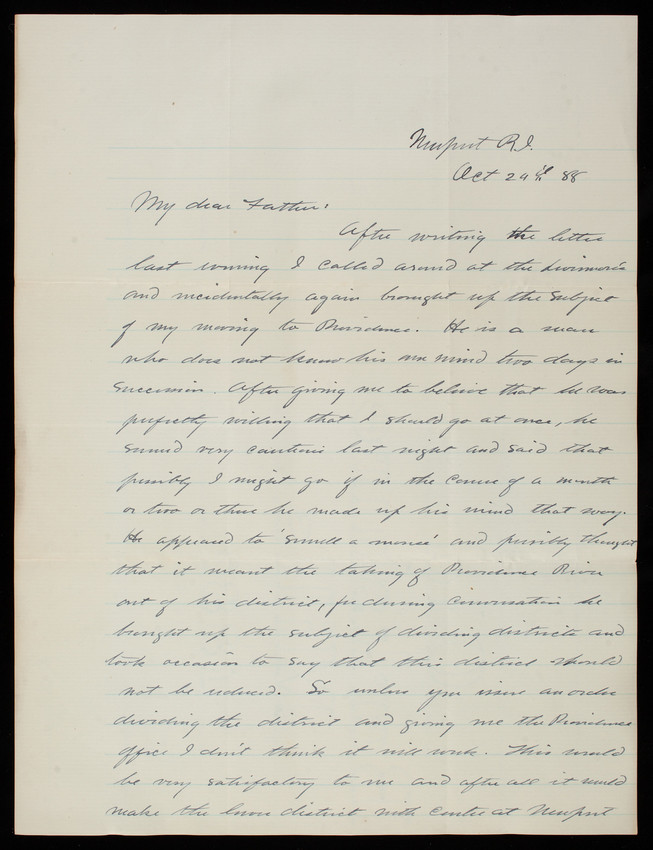 Newport R.I.
Oct 29th 88
My dear Father:
After writing the letter
last evening I called around at the Livermore's
and incidentally again brought up the subject
of my moving to Providence. He is a man
who does not know his own mind two days in
succession. After giving me to believe that he was
perfectly willing that I should go at once, he
seemed very cautious last night and said that
possibly I might go if in the course of a month
or two or three he made up his mind that way.
He appeared to 'smell a mouse' and possibly thought
that it meant the taking of Providence River
out of his district, for during conversation he
brought up the subject of dividing districts and
took occasion to say that this district should
not be reduced. So unless you issue an order
dividing the district and giving me the Providence
office I don't think it will work. This would
be very satisfactory to me and after all it would
make the lower district with centre at Newport